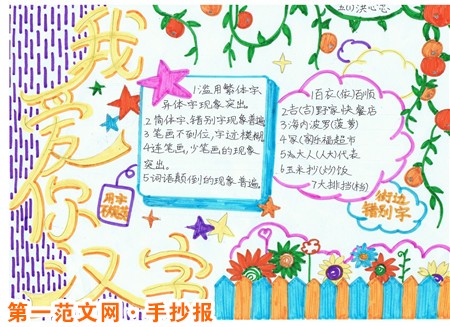 我爱你汉字
1滥用繁体字、
异体字现象突出
2简体字、错别字现象普遍
3笔画不到位,字迹模糊
4连笔画,少笔画的现象
突出.
5词语颠倒的现象普遍
1百衣(依)百顺
2吉(吉)野家快餐店
3海内波罗(菠萝)
4家(家)乐福超市
大人(人)代表
6玉米抄(炒)饭
7大排挡(档)
用字
街边
错别字
第一范文网·手抄报